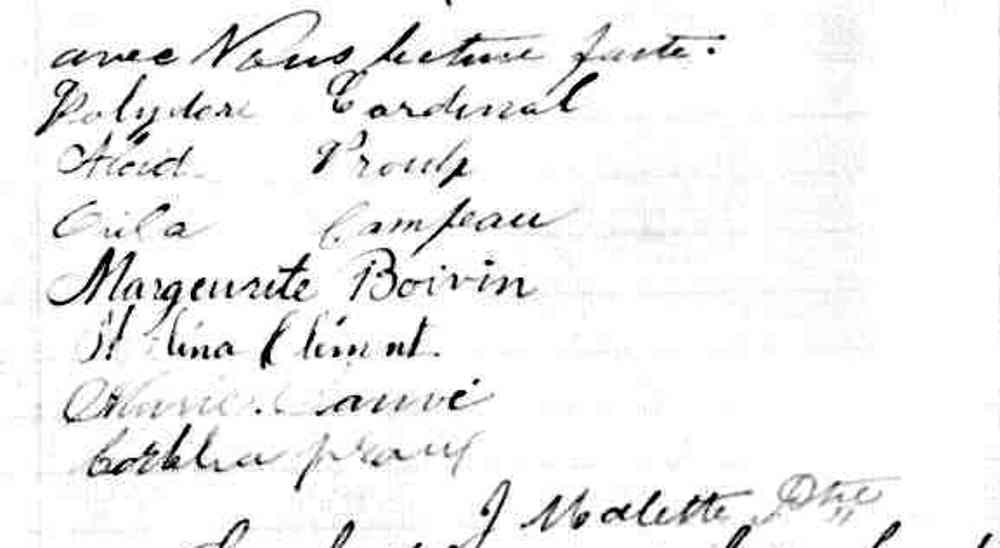 avec Nous lecture faite.
Polydore Cardinal
Alcid Proulx
Oila Campeau
Margeurite Boivin
Clément.
Marie Sauvé
Proulx
J Malette Ptre